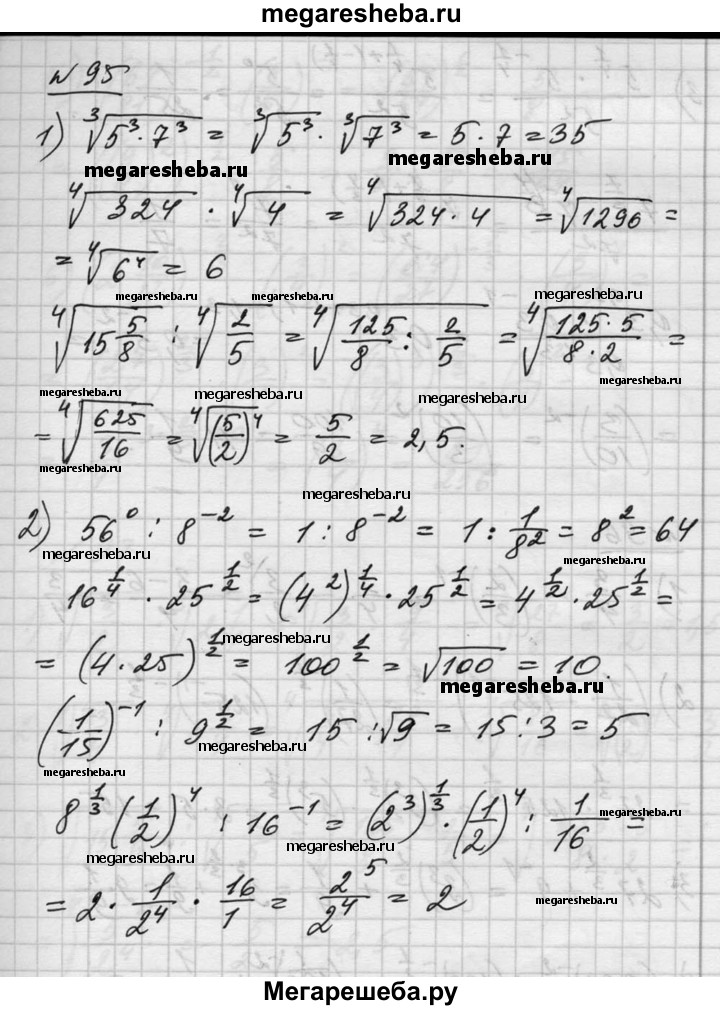 megaresheba.ru
№ 95
1) ∛(5³·7³) = ∛(5³) · ∛(7³) = 5·7 = 35
megaresheba.ru megaresheba.ru
∜324 · ∜4 = ∜(324·4) = ∜1296 =
= ∜(6⁴) = 6
megaresheba.ru megaresheba.ru megaresheba.ru
∜(15 5/8) : ∜(2/5) = ∜(125/8 : 2/5) = ∜((125·5)/(8·2)) =
megaresheba.ru megaresheba.ru megaresheba.ru megaresheba.ru
= ∜(625/16) = ∜((5/2)⁴) = 5/2 = 2,5.
megaresheba.ru
megaresheba.ru
2) 56⁰ : 8⁻² = 1 : 8⁻² = 1 : 1/8² = 8² = 64
megaresheba.ru megaresheba.ru
16^(1/4) · 25^(1/2) = (4²)^(1/4) · 25^(1/2) = 4^(1/2) · 25^(1/2) =
megaresheba.ru
= (4·25)^(1/2) = 100^(1/2) = √100 = 10.
megaresheba.ru
(1/15)⁻¹ : 9^(1/2) = 15 : √9 = 15 : 3 = 5
megaresheba.ru megaresheba.ru
8^(1/3) (1/2)⁴ : 16⁻¹ = (2³)^(1/3) · (1/2)⁴ : 1/16 =
megaresheba.ru
megaresheba.ru megaresheba.ru
= 2 · 1/2⁴ · 16/1 = 2⁵/2⁴ = 2
megaresheba.ru
Мегарешеба.ру